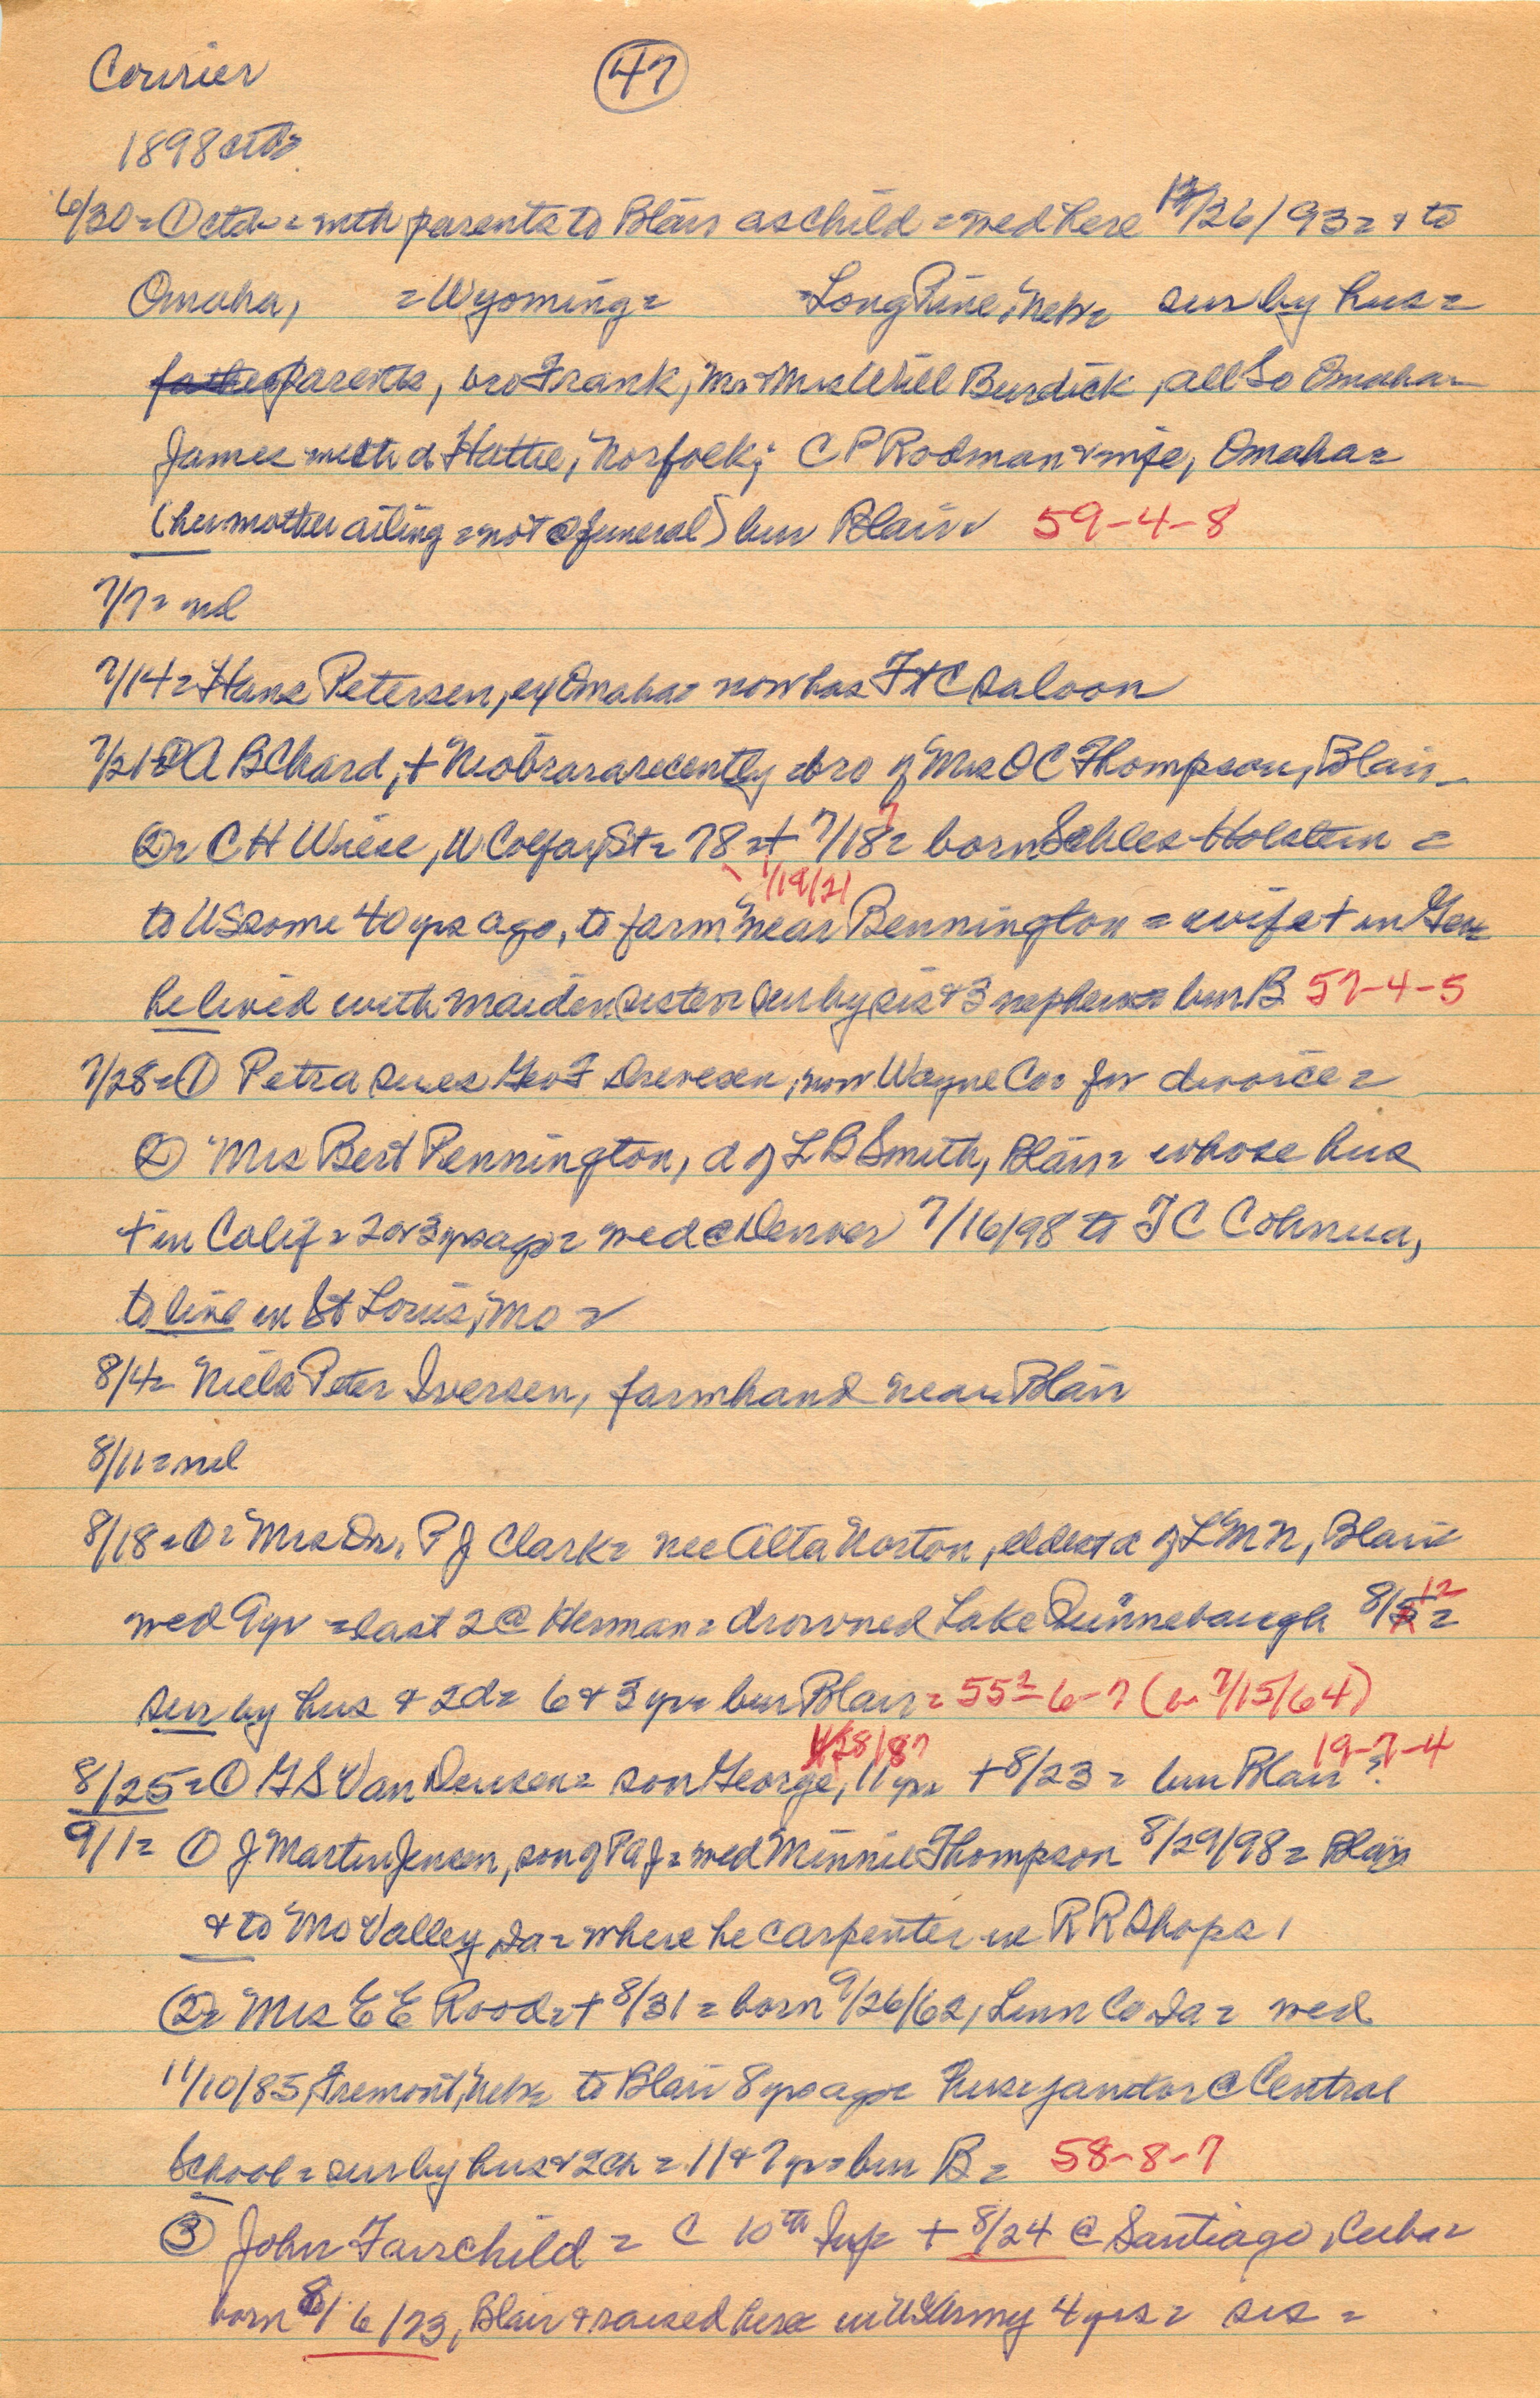 Courier
47
1898 ctd=
6/30=① ctd== with parents to Blair as child = wed here 12/26/93= & to
Omaha, =Wyoming= =Long Pine, Nebr= sur by hus=
father parents, bro Frank, Mr & Mrs Will Burdick, all So Omaha=
James with d Hattie, Norfolk; C P Rodman & wife, Omaha=
(her mother ailing = not @ funeral) bur Blair= 59-4-8
7/7= nil
7/14= Hans Petersen, ex Omaha= now has F & C saloon
7/21=① A B Chard, + Niobrara recently =bro of Mrs O C Thompson, Blair=
②= C H Wiese, W Colfax St= 78 =+ 7/18= born Schles-Holstein =
7
1/19/21
to US some 40 yrs ago, to farm near Bennington = wife + in Ger=
he lived with maiden sister= sur by sis & 3 nephews= bur B 57-4-5
7/28=① Petra sues Geo F Drevesen, now Wayne Co= for divorce=
② Mrs Bert Pennington, d of L B Smith, Blair= whose hus
+ in Calif = 2 or 3 yrs ago= wed @ Denver 7/16/98 to T C
to live in St Louis, Mo =
8/4= Niels Peter Iversen, farmhand near Blair
8/11=nil
8/18=①= Mrs Dr. P J Clark= nee Alta Norton, eldest d of L M N, Blair=
wed 9 yr =last 2 @ Herman= drowned Lake Quinnebaugh 8/5 12 =
sur by hus & 2d= 6 & 3 yr= bur Blair= 55²-6-7 (b 7/15/64)
8/28/87 19-7-4
8/25=① G S Van Deusen= son George, 11 yr= +8/23= bur Blair?
9/1= ① J Martin Jensen, son of P A J= wed Minnie Thompson 8/29/98= Blair
& to Mo Valley Ia= where he carpenter in R R Shops,
②= Mrs E E Rood=+ 8/31= born 9/26/62, Linn Co Ia= wed
11/10/85, Fremont, Nebr= to Blair 8 yrs ago= hus=janitor @ Central
School= sur by hus & 2 ch= 11 & 7 yr= bur B= 58-8-7
③ John Fairchild = C 10th Inf= + 8/24 @ Santiago, Cuba=
born 8/6/73, Blair & raised here= in US Army 4 yrs= sis=